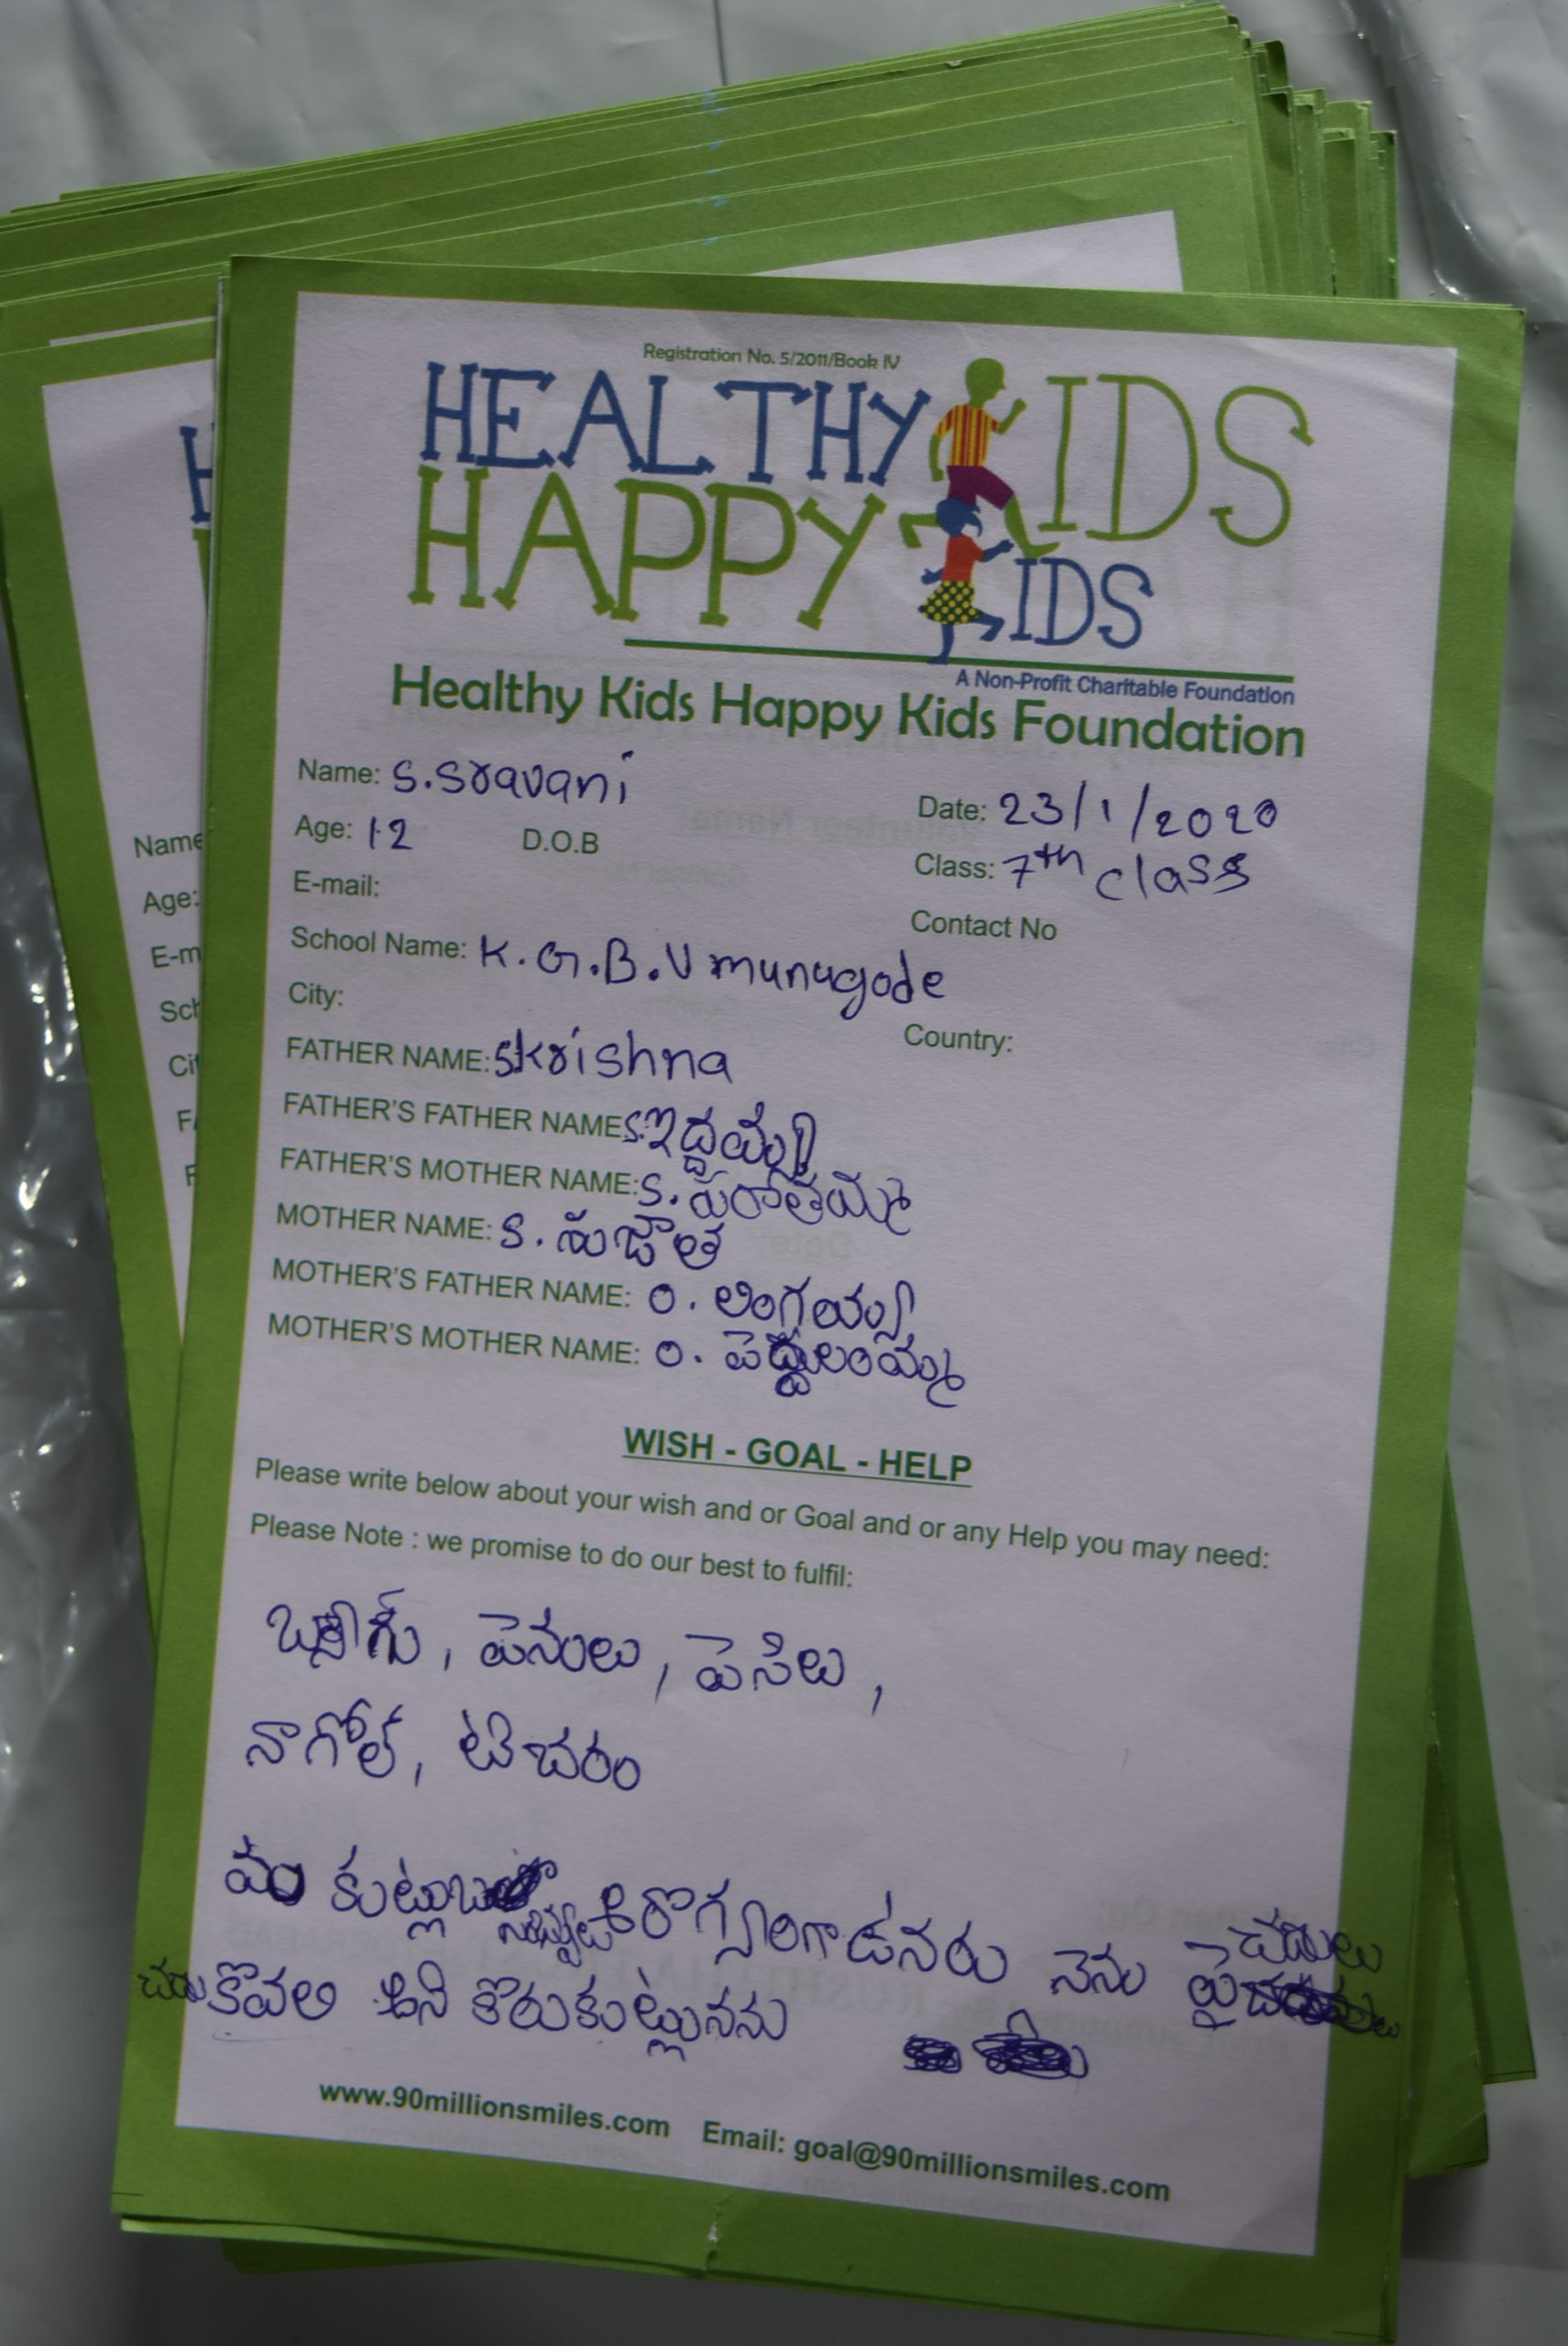 Registration No. 5/2011/Book IV
HEALTHY KIDS
HAPPY KIDS
A Non-Profit Charitable Foundation
Healthy Kids Happy Kids Foundation
Name: S.Sravani
Date: 23/1/2020
Age: 12 D.O.B
Class: 7th class
E-mail:
Contact No
School Name: K.G.B.V munugode
City:
Country:
FATHER NAME: S krishna
FATHER'S FATHER NAME: S.
FATHER'S MOTHER NAME: S.
MOTHER NAME: S. సుజాత
MOTHER'S FATHER NAME: O. లింగయ్య
MOTHER'S MOTHER NAME: O.
WISH - GOAL - HELP
Please write below about your wish and or Goal and or any Help you may need:
Please Note : we promise to do our best to fulfil:
పెనులు, పెసిలు,
టిచరం
నెను చదులు
కొవలి అని కొరుకుట్లునను
www.90millionsmiles.com Email: goal@90millionsmiles.com
Name
Age:
E-m
Sch
Cit